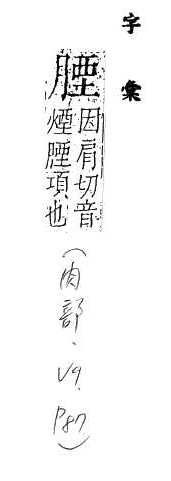 字彙
腰
因肩切音
煙腰項也
(肉部、V9、P87)